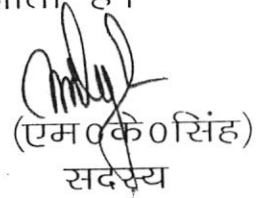 (एम०के०सिंह)
सदस्य